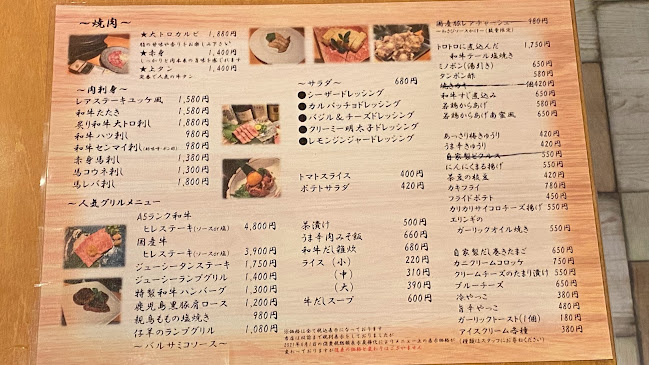 ～焼肉～
★大トロカルビ 1,680円
★赤身 1,400円
★上タン 1,400円
定番で人気の牛タン
～肉刺身～
レアステーキユッケ風 1,580円
和牛たたき 1,580円
炙り和牛大トロ刺し 1,580円
和牛ハツ刺し 980円
和牛センマイ刺し 980円
赤身馬刺し 1,380円
馬コウネ刺し 1,380円
馬レバ刺し 1,380円
～人気グリルメニュー
A5ランク和牛
ヒレステーキ(ソースor塩) 4,800円
国産牛
ヒレステーキ(ソースor塩) 3,900円
ジューシータンステーキ 1,750円
ジューシーランプグリル 1,400円
特製和牛ハンバーグ 1,300円
鹿児島黒豚肩ロース 1,200円
桃鳥もも塩焼き 980円
仔羊のランプグリル 1,080円
～バルサミコソース～
～サラダ～ 680円
●シーザードレッシング
●カルパッチョドレッシング
●バジル＆チーズドレッシング
●クリーミー明太子ドレッシング
●レモンジンジャードレッシング
トマトスライス 400円
ポテトサラダ 420円
茶漬け 500円
うま辛肉みそ飯 660円
和牛だし雑炊 680円
ライス (小) 220円
(中) 310円
(大) 390円
牛だしスープ 600円
国産豚レアチャーシュー 980円
トロトロに煮込んだ 1,750円
和牛テール塩焼き
ミノポン(湯引き) 650円
タンポン酢 650円
個420円
和牛すじ煮込み 650円
若鶏からあげ 580円
若鶏からあげ南蛮風 650円
あっさり梅きゅうり 420円
うま辛きゅうり 420円
自家製ピクルス 550円
にんにくまる揚げ 550円
茶豆の枝豆 420円
カキフライ 780円
フライドポテト 450円
カリカリサイコロチーズ揚げ 550円
エリンギの
ガーリックオイル焼き 550円
自家製だし巻きたまご 650円
カニクリームコロッケ 750円
クリームチーズのたまり漬け 550円
ブルーチーズ 650円
冷やっこ 380円
旨辛やっこ 580円
ガーリックトースト(1個) 180円
アイスクリーム各種 380円
(種類はスタッフにお尋ねください)
※価格は全て税込表示になっております